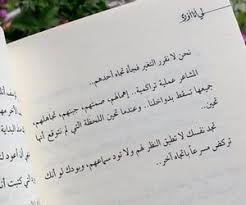 لي/دازيزو
نحن لا نقرر التغير فجأة تجاه أحدهم..
المشاعر عملية تراكمية .. إهمالهم، صمتهم، جبنهم، تجاهلهم،
جميعها تسقط بدواخلنا.. وعندما تحين اللحظة التي لم نتوقع أنها
تحين..
تجد نفسك لا تطيق النظر لهم ولا تود سماعهم، وبودك لو أنك
تركض مسرعاً باتجاه آخر..